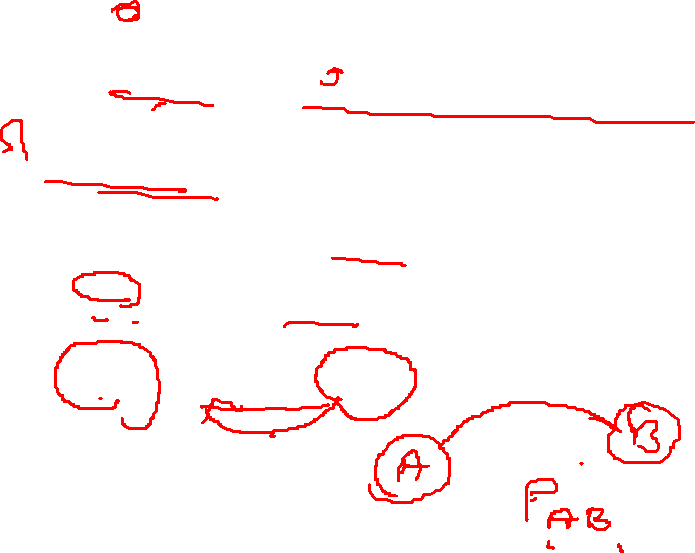 A B
P_AB